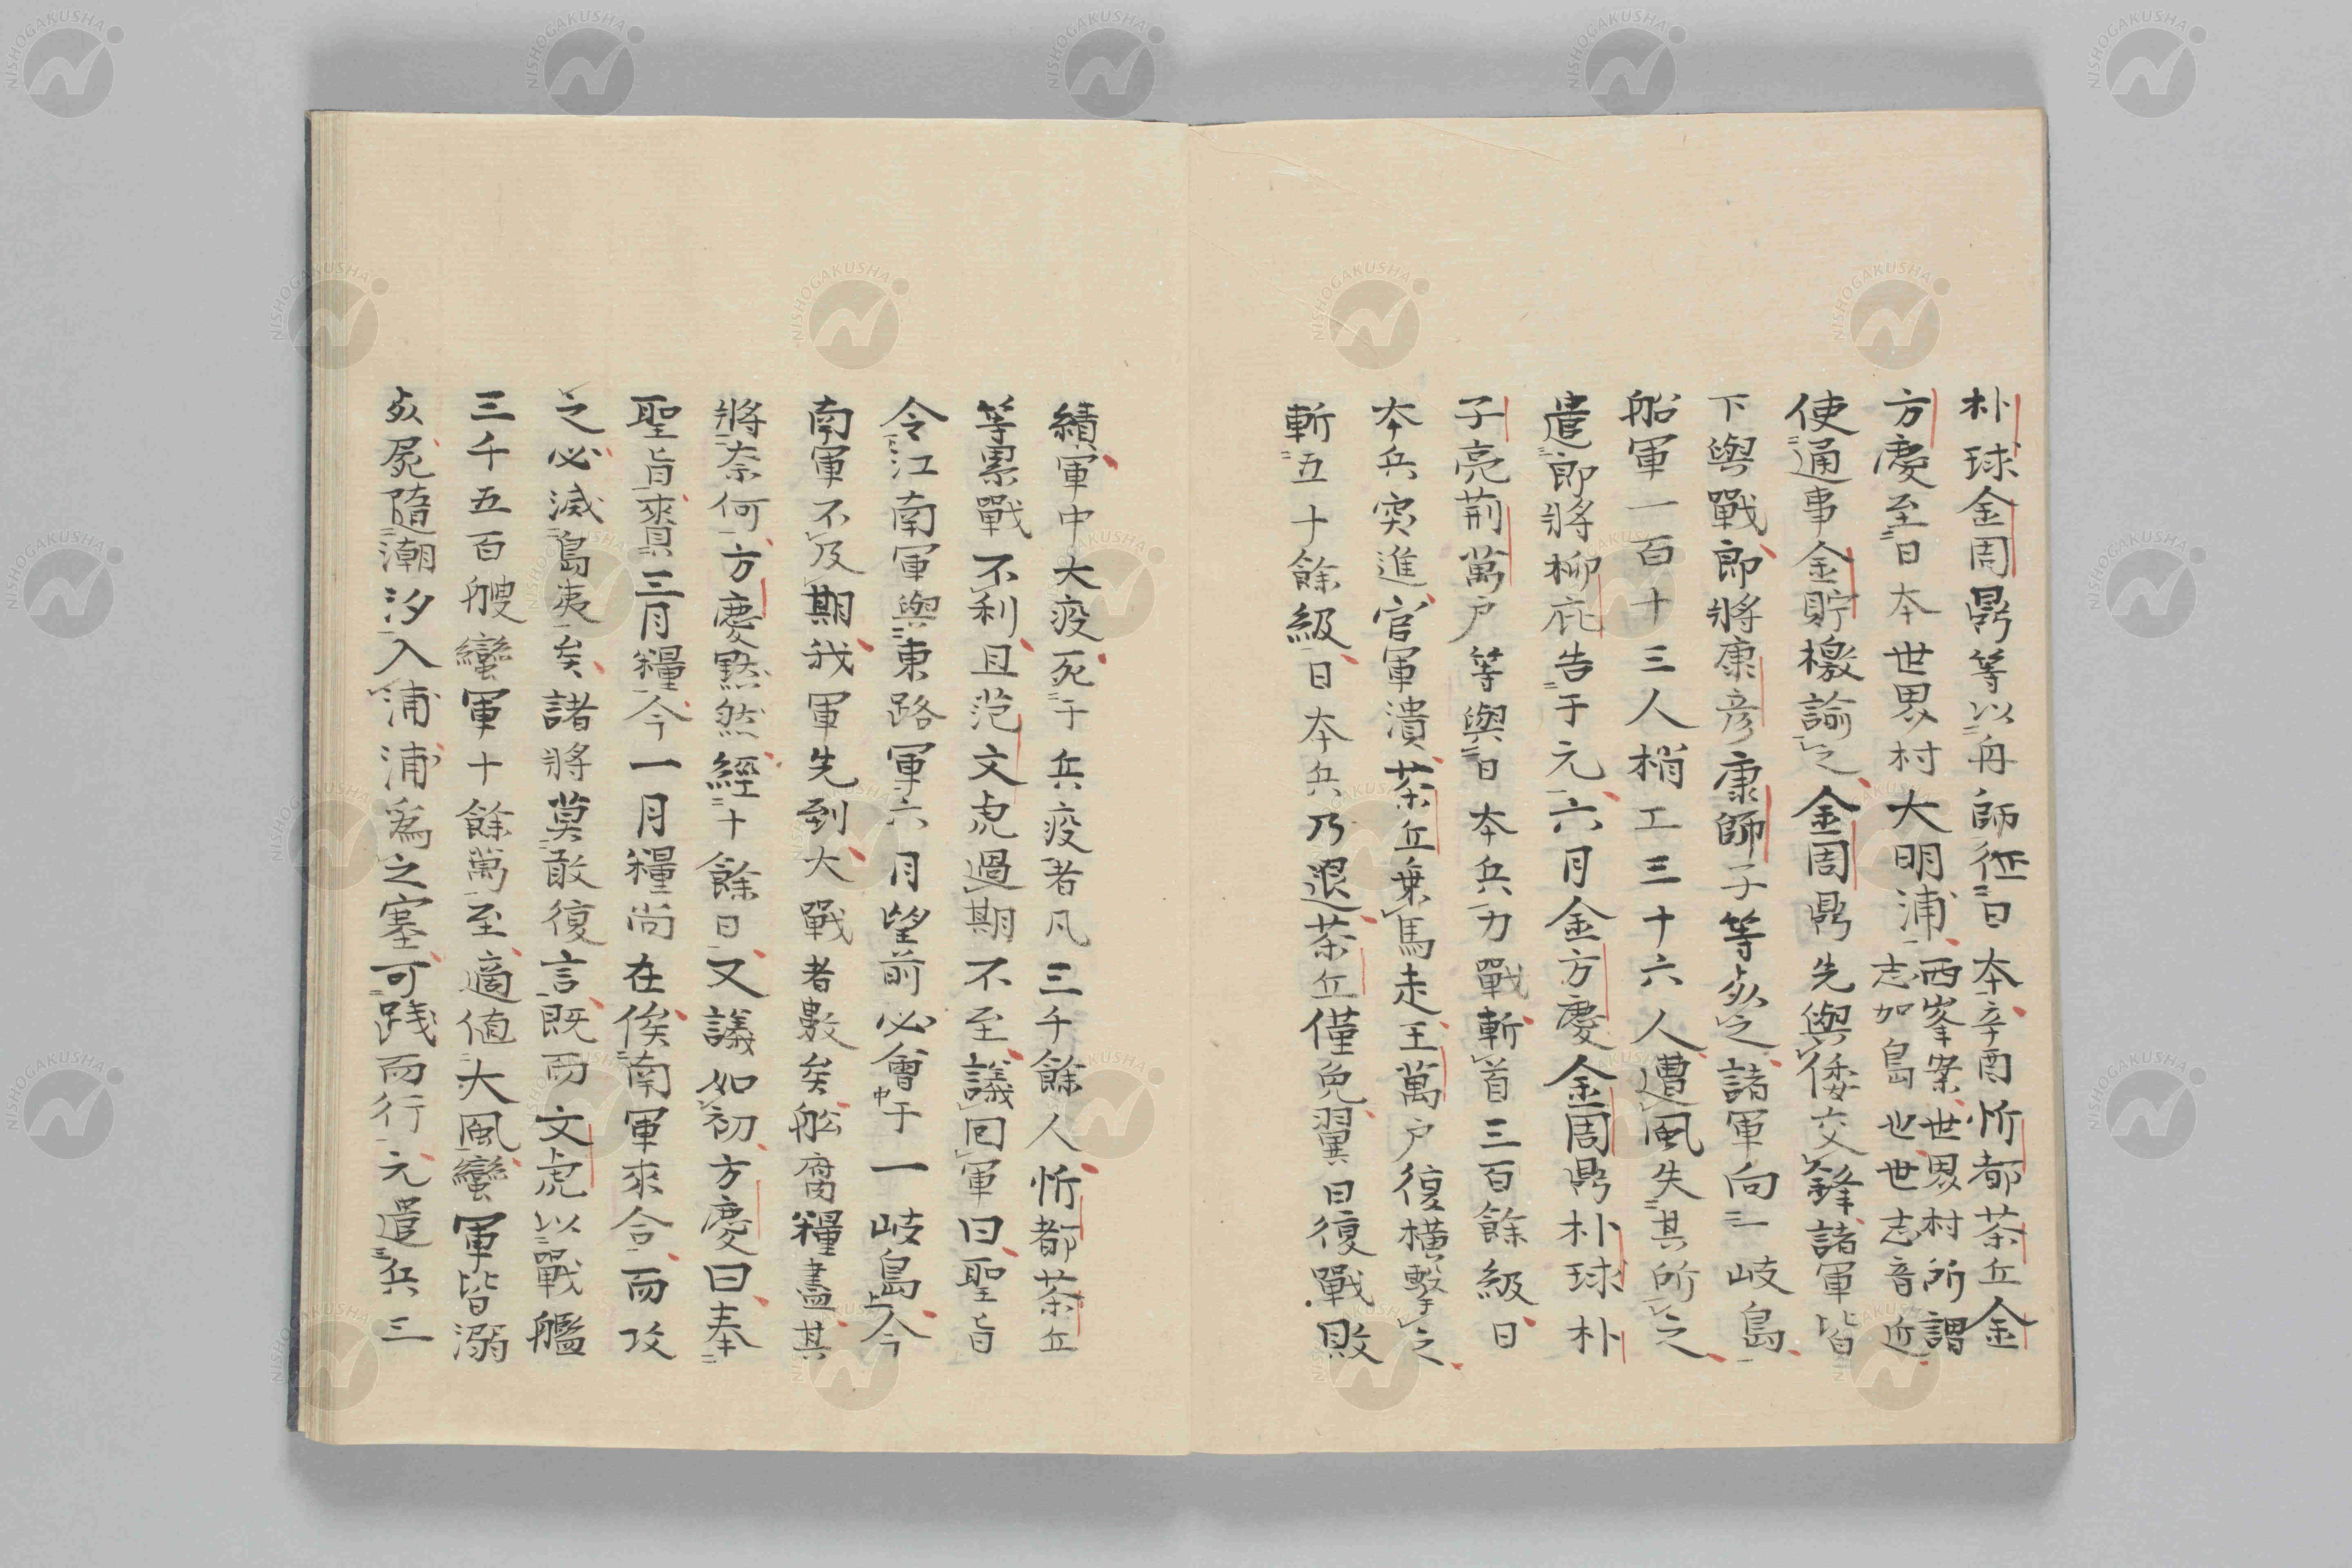 朴球金周鼎等以舟師征日本辛酉忻都茶丘金
方慶至日本世界村大明浦西峯案世界村所謂志加島也世志音近
使通事金貯檄諭之金周鼎先與倭交鋒諸軍皆
下與戰郎將康彦康師子等死之諸軍向一岐島
船軍一百十三人梢工三十六人遭風失其所之
遣郎將柳庇告于元六月金方慶金周鼎朴球朴
子亮荊萬戶等與日本兵力戰斬首三百餘級日
本兵突進官軍潰茶丘乗馬走王萬戶復橫擊之
斬五十餘級日本兵乃退茶丘僅免翼日復戰敗
績軍中大疫死于兵疫者凡三千餘人忻都茶丘
等累戰不利且范文虎過期不至議回軍曰聖旨
令江南軍與東路軍六月望前必會中于一岐島上今
南軍不及期我軍先到大戰者數矣舩腐糧盡其
將奈何方慶黙然經十餘日又議如初方慶曰奉
聖旨賚三月糧今一月糧尚在俟南軍來合而攻
之必滅島夷矣諸將莫敢復言既而文虎以戰艦
三千五百艘蠻軍十餘萬至適値大風蠻軍皆溺
死屍隨潮汐入浦浦爲之塞可践而行元遣兵三